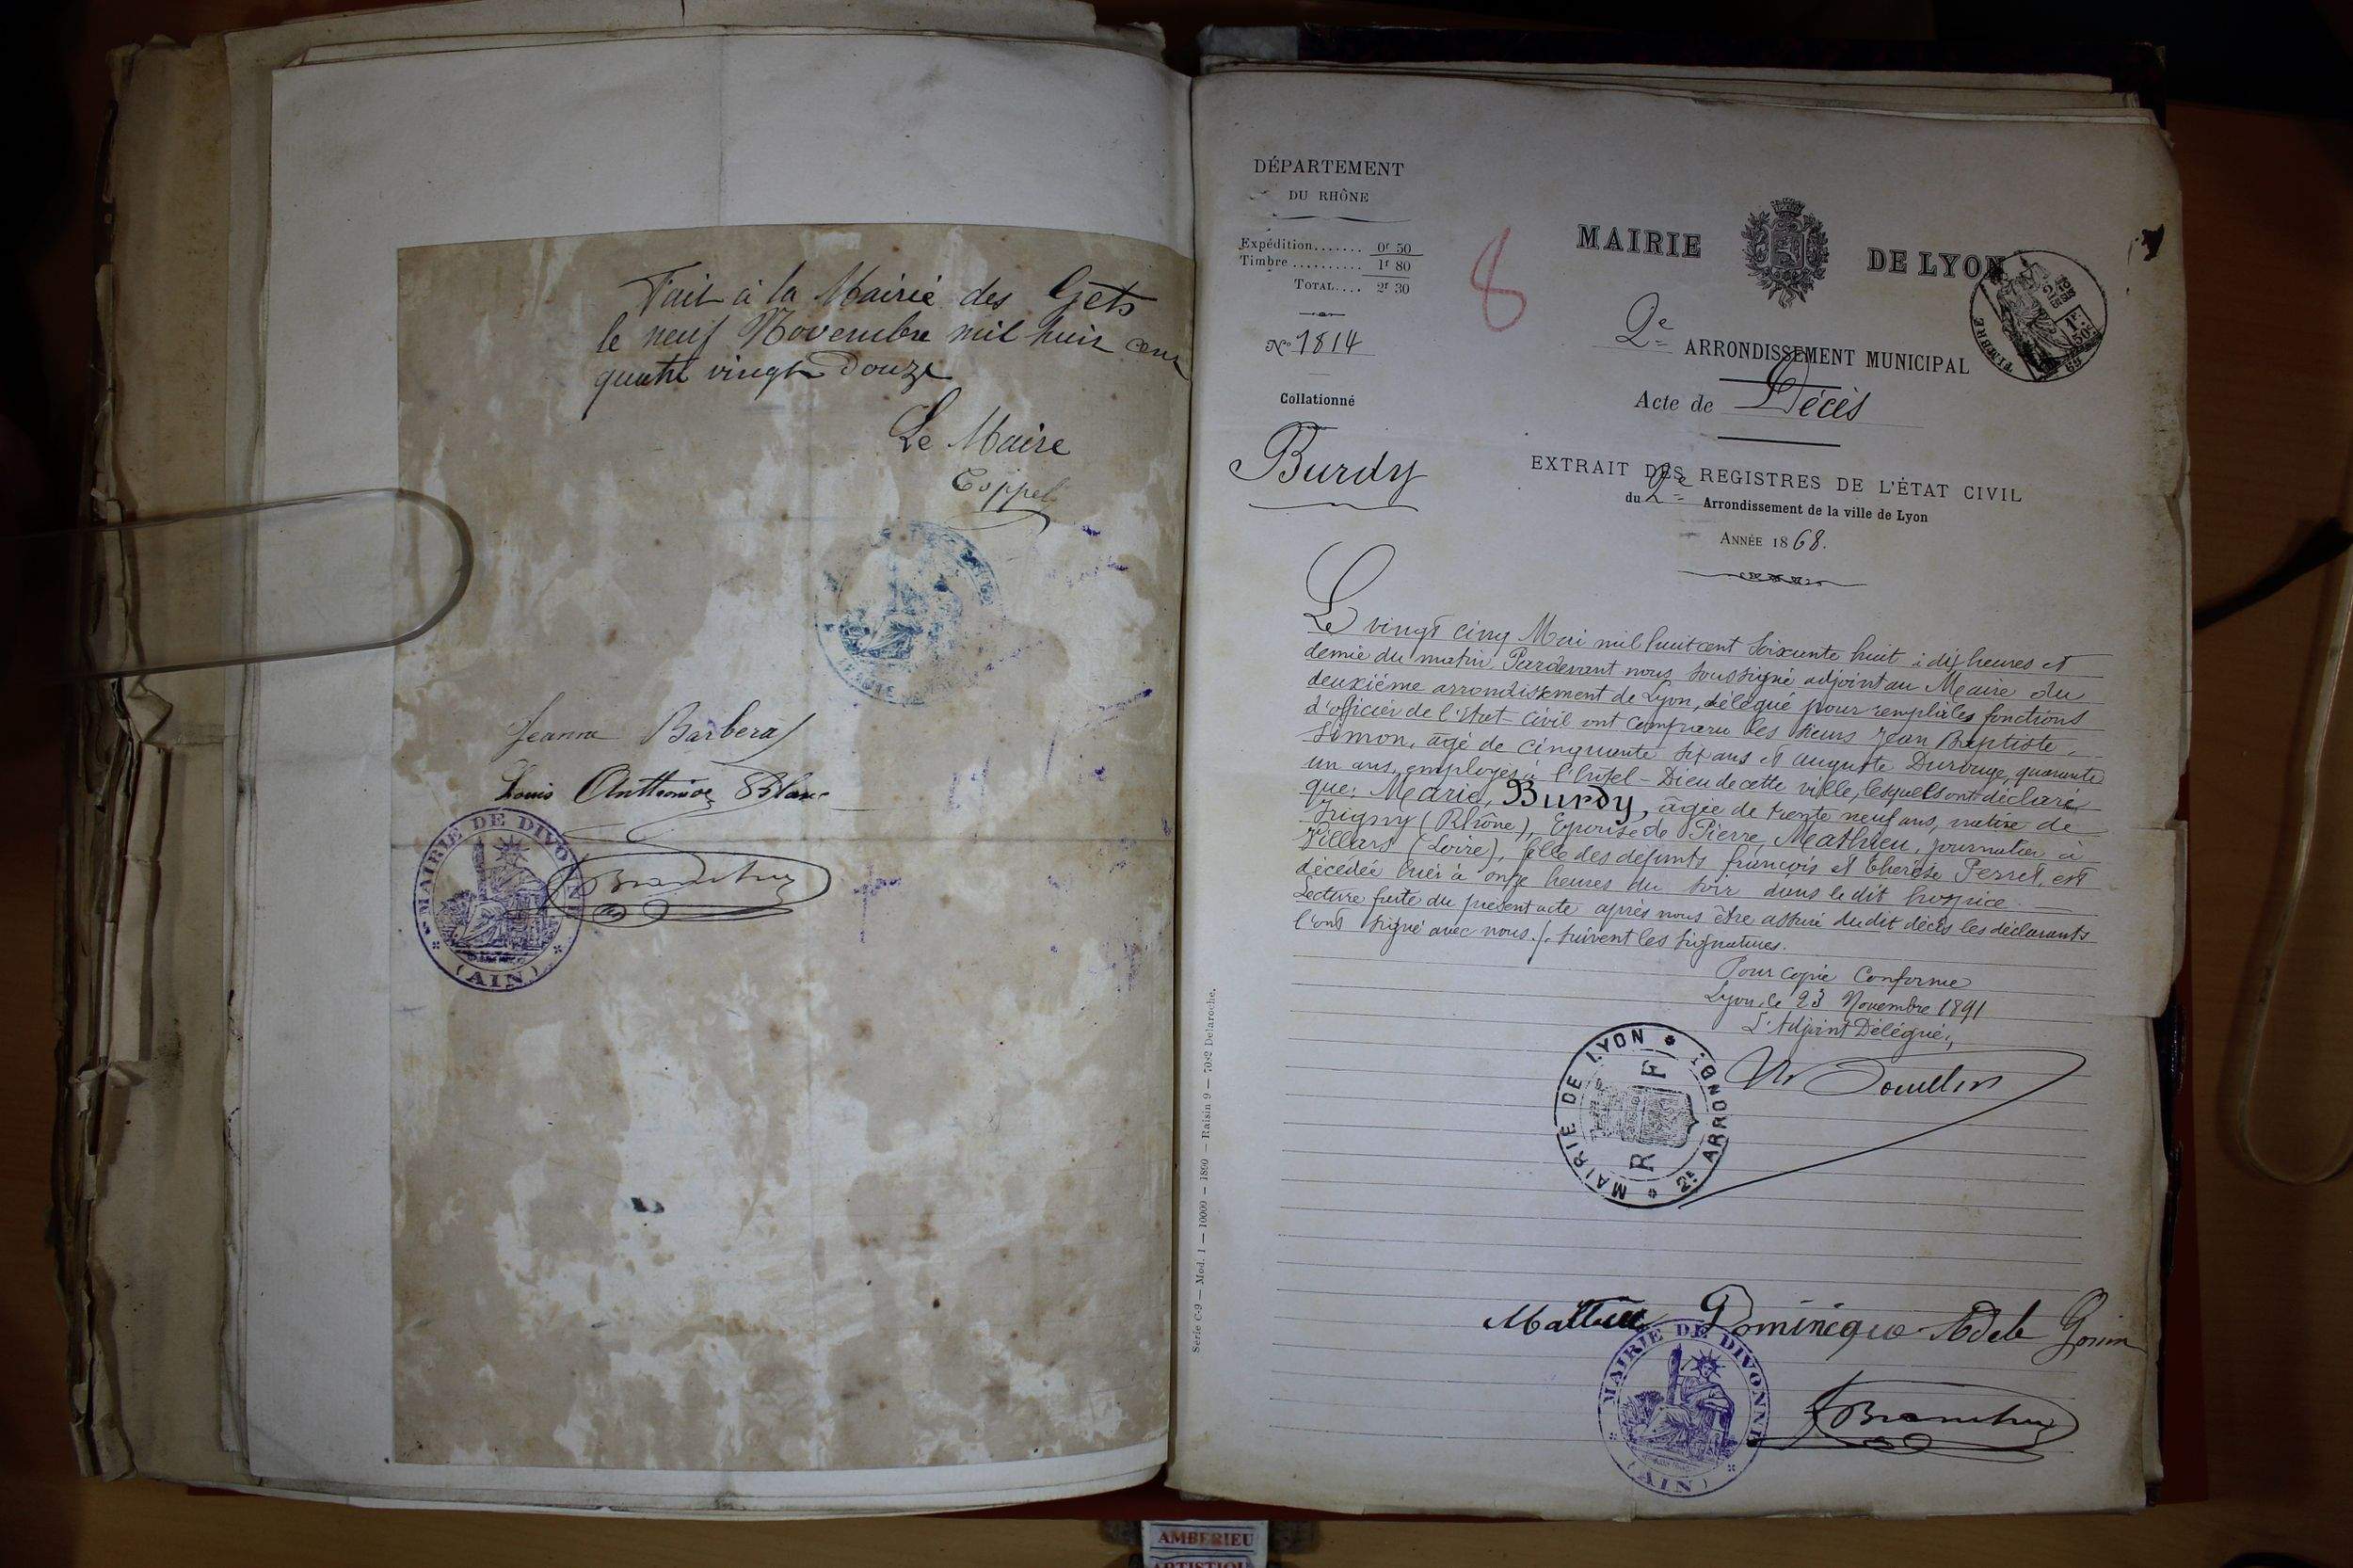 Fait à la Mairie des Gets
le neuf Novembre mil huit cent
quatre vingt Douze
Le Maire
Coppel
Jeanne Barberat
Louis Anthonioz Blanc
MAIRIE DE DIVONNE
(AIN)
DÉPARTEMENT
DU RHÔNE
Expédition....... 0f 50
Timbre .......... 1f 80
TOTAL.... 2f 30
No 1814
Collationné
Burdy
8
MAIRIE DE LYON
TIMBRE
2e ARRONDISSEMENT MUNICIPAL
Acte de Décès
EXTRAIT DES REGISTRES DE L'ÉTAT CIVIL
du 2e Arrondissement de la ville de Lyon
ANNÉE 1868.
Le vingt cinq Mai mil huit cent soixante huit à dix heures et
demie du matin Pardevant nous soussigné adjoint au Maire du
deuxième arrondissement de Lyon, délégué pour remplir les fonctions
d'officier de l'état-civil ont comparu les sieurs Jean Baptiste
Simon, âgé de cinquante six ans et Auguste Durouge, quarante
un ans, employés à l'hôtel-Dieu de cette ville, lesquels ont déclaré
que, Marie, Burdy, âgée de trente neuf ans, native de
Irigny (Rhône), Epouse de Pierre, Mathieu, journalier à
Villars (Loire), fille des défunts françois et Thérèse Perret, est
décédée hier à onze heures du soir dans le dit hospice.
Lecture faite du présent acte après nous être assuré du dit décès les déclarants
l'ont signé avec nous. Suivent les signatures.
Pour copie Conforme
Lyon, le 23 Novembre 1891
L'Adjoint Délégué,
MAIRIE DE LYON
2E ARRONDT
R F
Mathieu Dominique Adele Gonin
MAIRIE DE DIVONNE
(AIN)
Série C-9 — Mod. 1 — 10000 — 1890 — Raisin 9 — 7082 Delaroche.
AMBERIEU